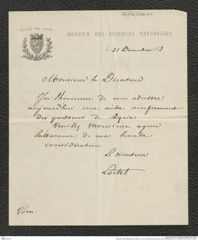 VILLE DE LYON
MUSEUM DES SCIENCES NATURELLES
le 31 Décembre 83
Monsieur le Directeur
J'ai l'honneur de vous adresser
aujourd'hui une caisse renfermant
des poissons de Syrie
Veuillez Monsieur agréer
l'assurance de ma haute
considération
Le directeur
Lortet